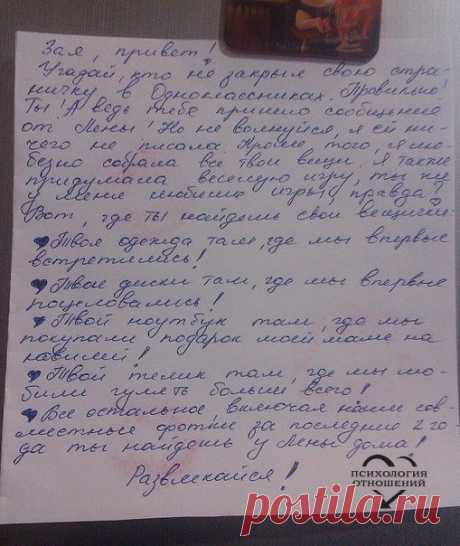 Зая, привет!
Угадай, кто не закрыл свою стра-
ничку в Одноклассниках. Правильно!
Ты! А ведь тебе пришло сообщение
от Лены! Но не волнуйся, я ей ни-
чего не писала. Кроме того, я лю-
безно собрала все твои вещи. Я также
придумала веселую игру, ты же
у меня любишь игры, правда?
Вот, где ты найдешь свои вещички:
Твоя одежда там, где мы впервые
встретились!
Твои диски там, где мы впервые
поцеловались!
Твой ноутбук там, где мы
покупали подарок моей маме на
юбилей!
Твой телик там, где мы лю-
били гулять больше всего!
Все остальное, включая наши сов-
местные фотки за последние 2 го-
да ты найдешь у Лены дома!
Развлекайся!
ПСИХОЛОГИЯ
ОТНОШЕНИЙ
postila.ru